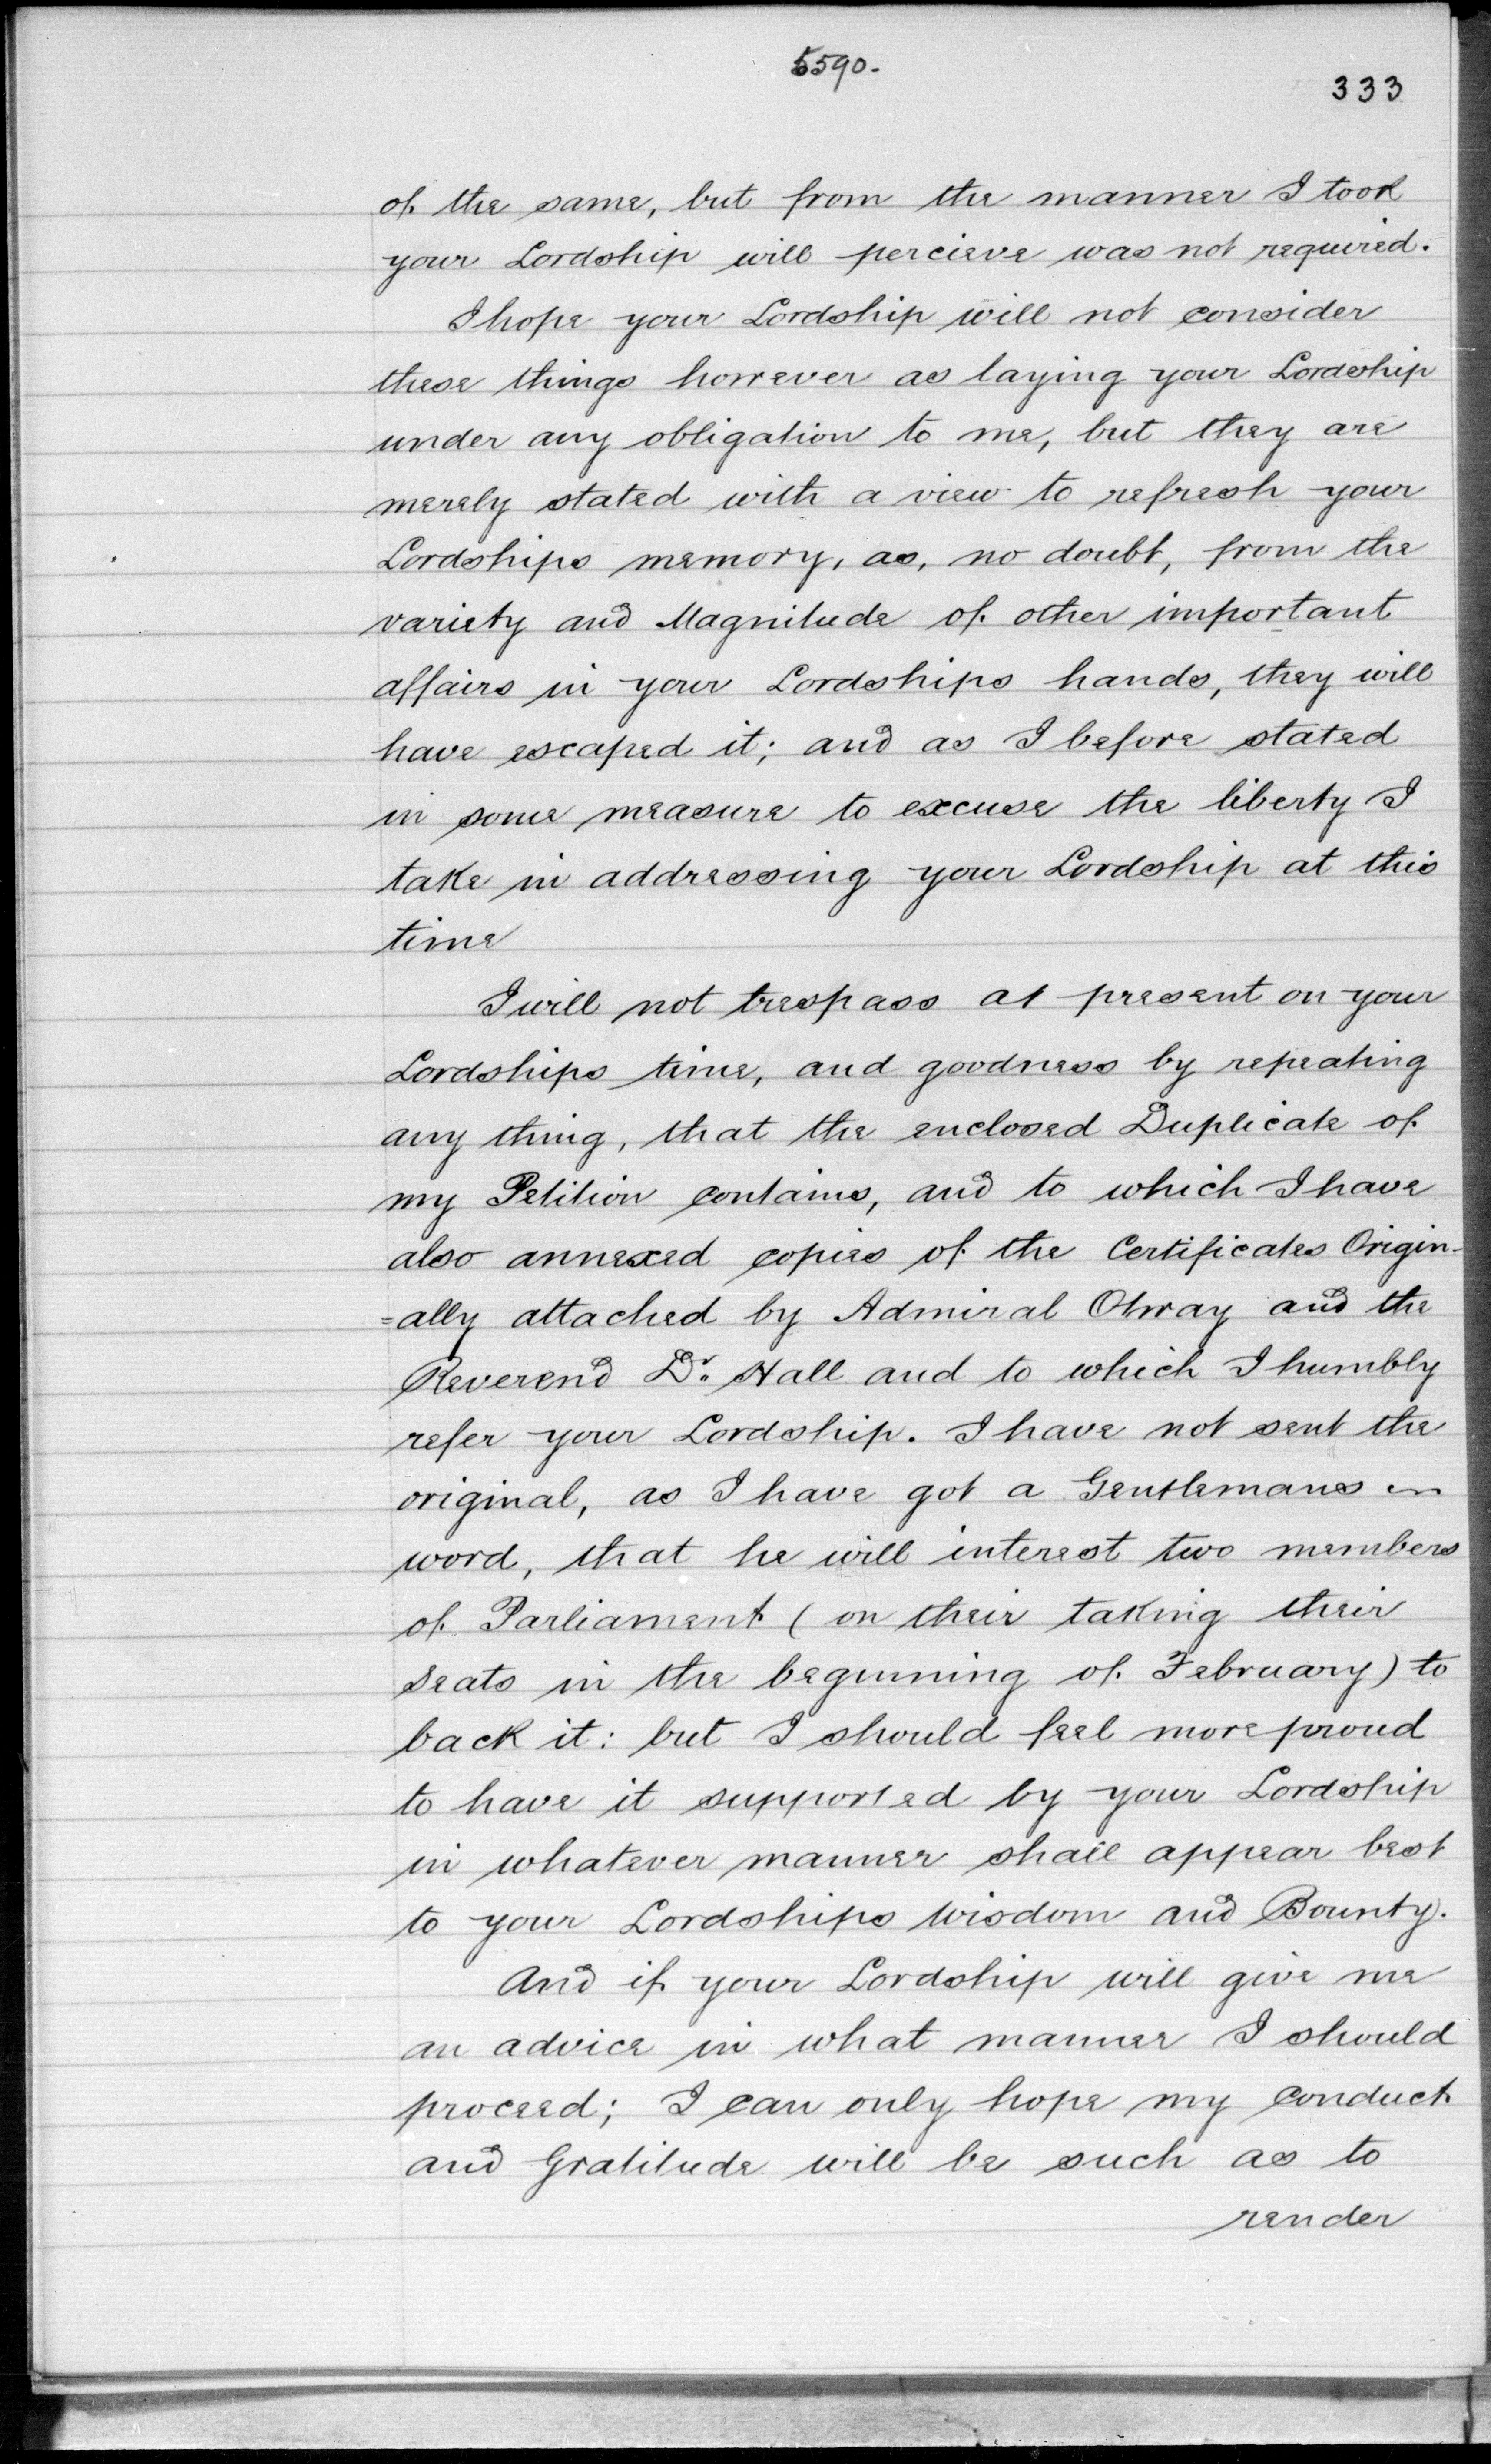 5590.
333
of the same, but from the manner I took
your Lordship will percieve was not required.
I hope your Lordship will not consider
these things however as laying your Lordship
under any obligation to me, but they are
merely stated with a view to refresh your
Lordships memory, as, no doubt, from the
variety and Magnitude of other important
affairs in your Lordships hands, they will
have escaped it; and as I before stated
in some measure to excuse the liberty I
take in addressing your Lordship at this
time
I will not trespass at present on your
Lordships time, and goodness by repeating
any thing, that the enclosed Duplicate of
my Petition contains, and to which I have
also annexed copies of the Certificates Origin-
=ally attached by Admiral Otway and the
Reverend Dr. Hall and to which I humbly
refer your Lordship. I have not sent the
original, as I have got a Gentlemans
word, that he will interest two members
of Parliament (on their taking their
seats in the beginning of February) to
back it: but I should feel more proud
to have it supported by your Lordship
in whatever manner shall appear best
to your Lordships wisdom and Bounty.
And if your Lordship will give me
an advice in what manner I should
proceed; I can only hope my conduct
and Gratitude will be such as to
render